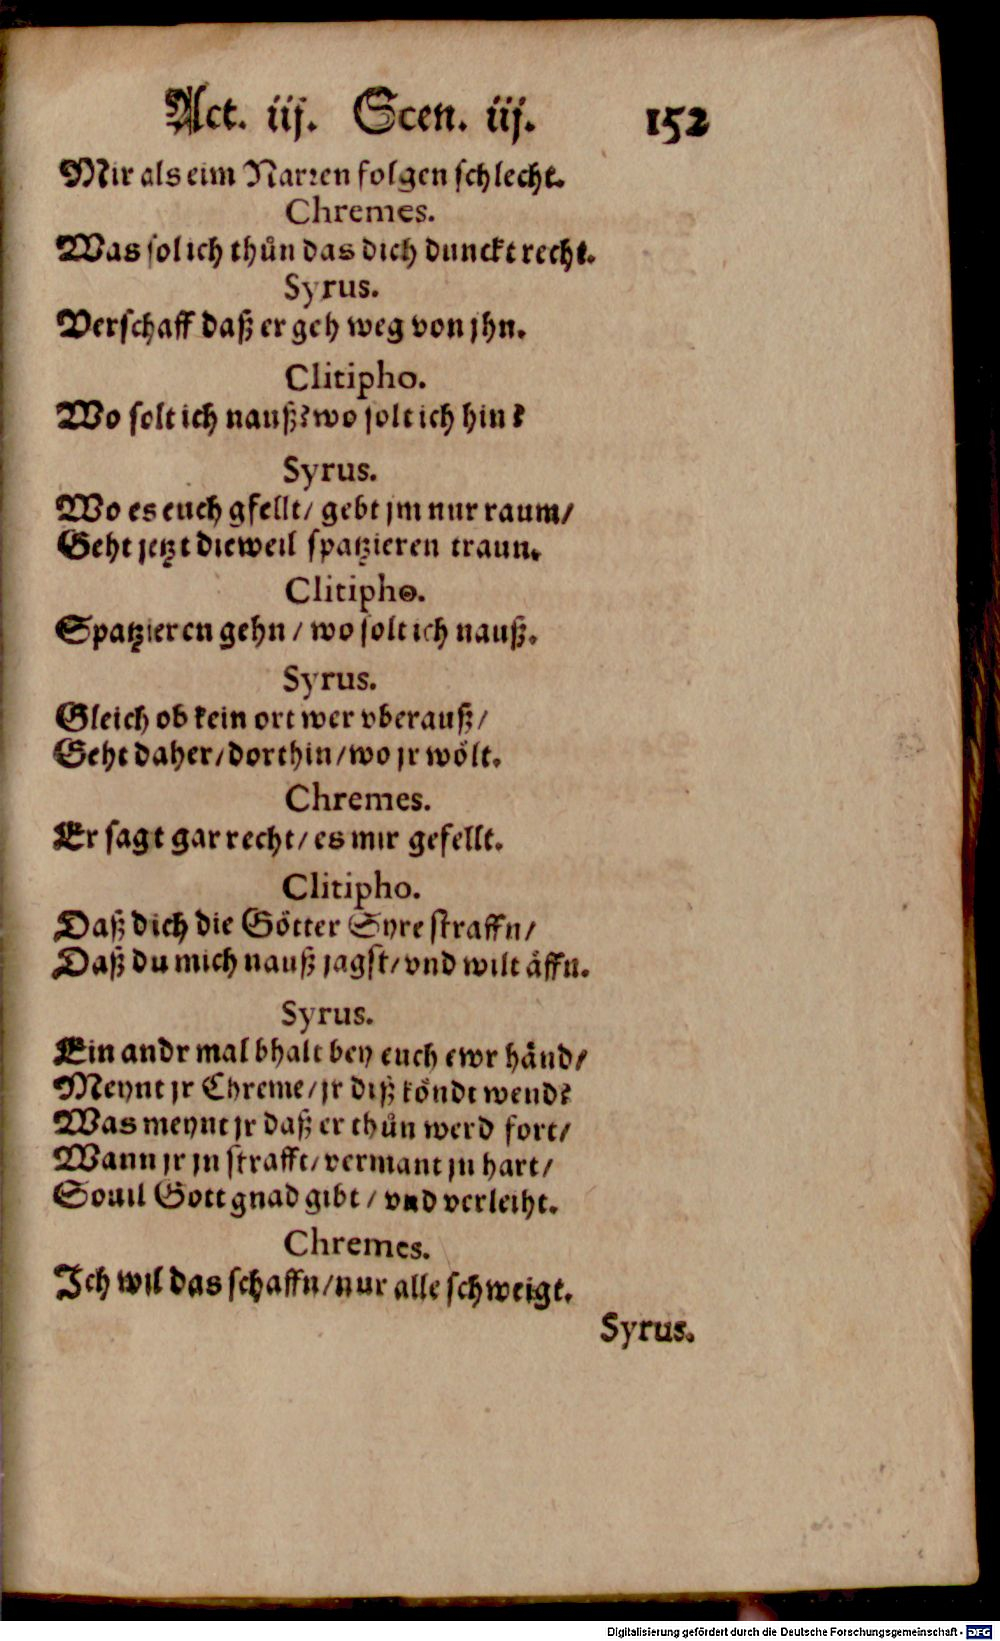 Act. iij. Scen. iij. 152
Mir als eim Narren folgen schlecht.
Chremes.
Was sol ich thůn das dich dunckt recht.
Syrus.
Verschaff daß er geh weg von jhn.
Clitipho.
Wo solt ich nauß? wo solt ich hin?
Syrus.
Wo es euch gfellt/ gebt jm nur raum/
Geht jetzt dieweil spatzieren traun.
Clitipho.
Spatzieren gehn / wo solt ich nauß.
Syrus.
Gleich ob kein ort wer vberauß/
Geht daher/dorthin/wo jr wölt.
Chremes.
Er sagt gar recht/ es mir gefellt.
Clitipho.
Daß dich die Götter Syre straffn/
Daß du mich nauß jagst/ vnd wilt äffn.
Syrus.
Ein andr mal bhalt bey euch ewr händ/
Meynt jr Chreme/ jr diß köndt wend?
Was meynt jr daß er thůn werd fort/
Wann jr jn strafft/ vermant jn hart/
Souil Gott gnad gibt / vnd verleiht.
Chremes.
Ich wil das schaffn/nur alle schweigt.
Syrus.
Digitalisierung gefördert durch die Deutsche Forschungsgemeinschaft - DFG